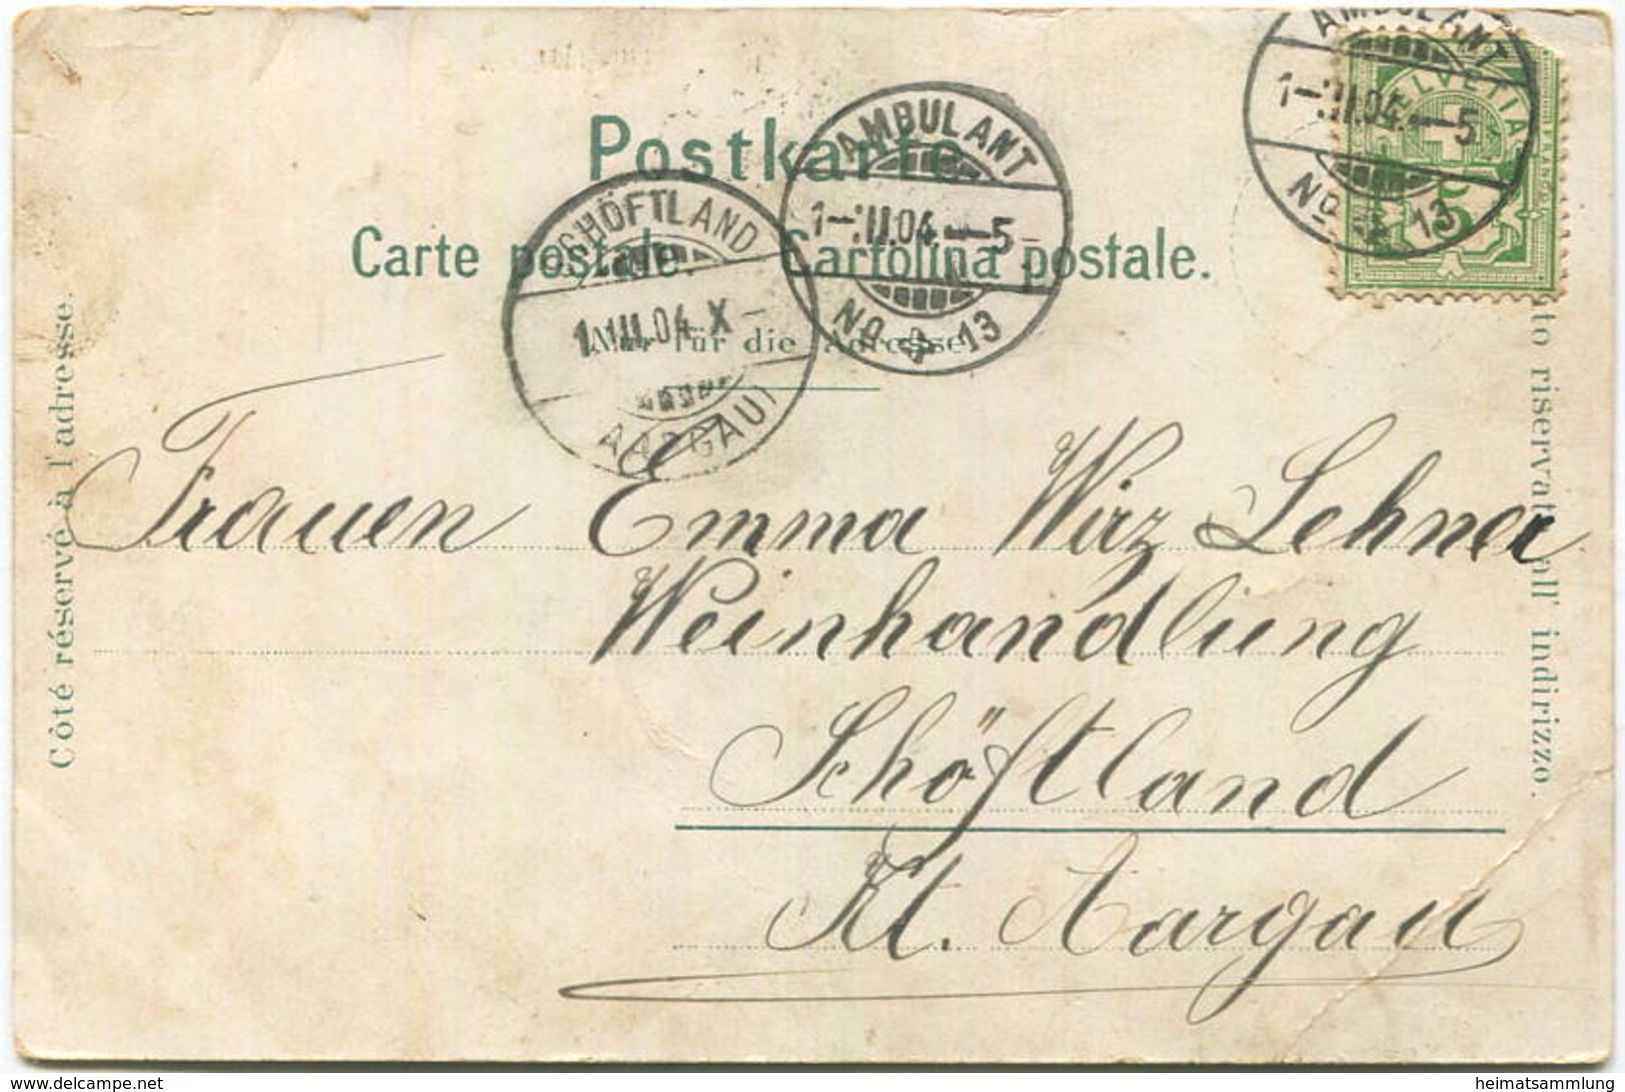 Postkarte
Carte postale. Cartolina postale.
Nur für die Adresse.
Côté réservé à l'adresse.
all' indirizzo.
AMBULANT
1-.III.04.-5
No 13
AMBULANT
1-.III.04.-5-
No 13
SCHÖFTLAND
1.III.04.X-
AARGAU
HELVETIA
5
FRANCO
Frauen Emma Wirz Lehner
Weinhandlung
Schöftland
Kt. Aargau
www.delcampe.net
heimatsammlung